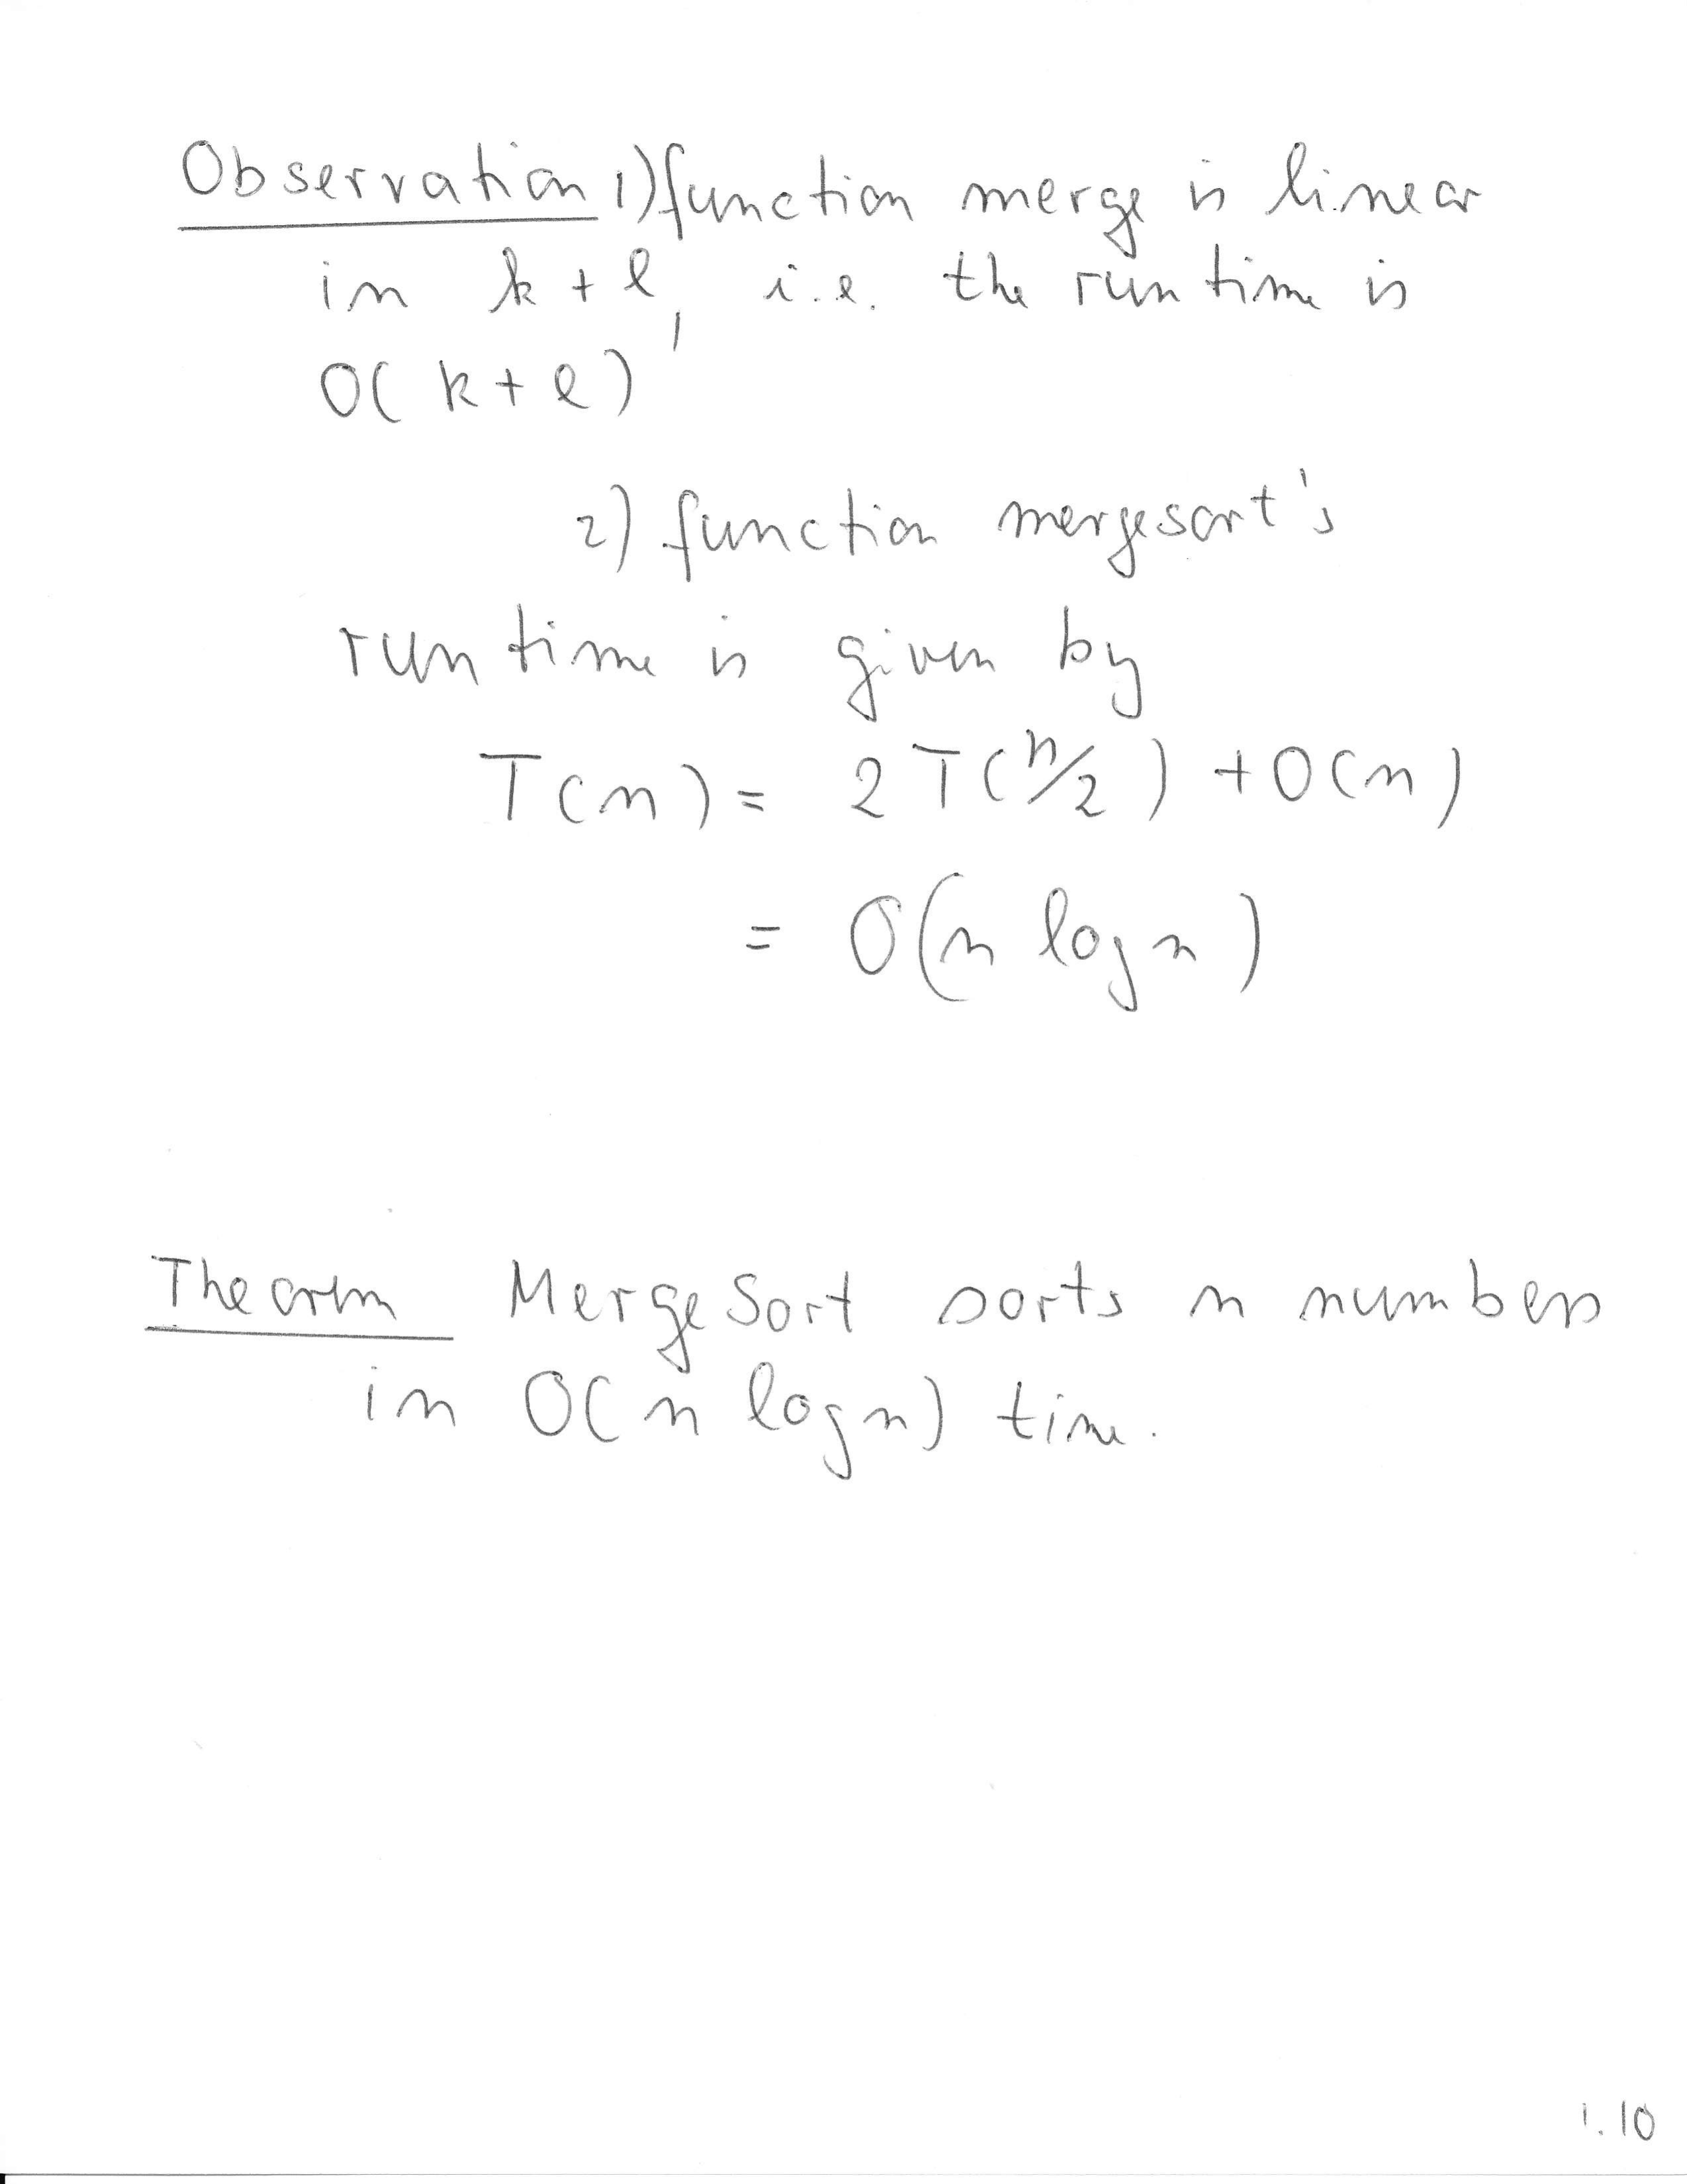 Observation 1) function merge is linear
in k + l, i.e. the run time is
O( k + l )
2) function mergesort's
run time is given by
T(n) = 2 T(n/2) + O(n)
= O(n log n)
Theorem MergeSort sorts n numbers
in O(n log n) time.
1.10